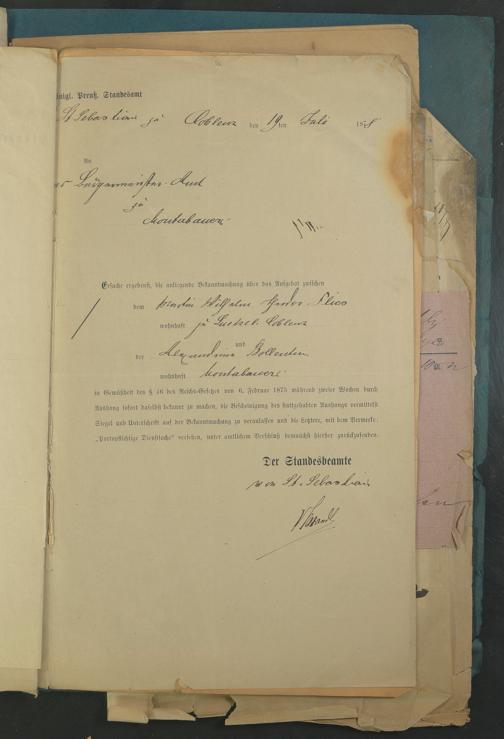 Königl. Preuß. Standesamt
St Sebastian zu Coblenz den 19ten Juli 1878
An
Bürgermeister-Amt
zu
Montabaur
Ersuche ergebenst, die anliegende Bekanntmachung über das Aufgebot zwischen
dem Martin Wilhelm
wohnhaft zu Lützel-Coblenz
und
der Alexandrina
wohnhaft Montabaur
in Gemäßheit des § 46 des Reichs-Gesetzes vom 6. Februar 1875 während zweier Wochen durch
Aushang sofort daselbst bekannt zu machen, die Bescheinigung des stattgehabten Aushangs vermittelst
Siegel und Unterschrift auf der Bekanntmachung zu veranlassen und die Letztere, mit dem Vermerke:
„Portopflichtige Dienstsache" versehen, unter amtlichem Verschluß demnächst hierher zurückzusenden.
Der Standesbeamte
von St. Sebastian